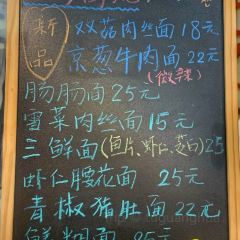 新品
双菇肉丝面18元
京葱牛肉面22元
(微辣)
肠肠面25元
雪菜肉丝面15元
三鲜面(鱼片、虾仁、茭白)25
虾仁腰花面 25元
青椒猪肚面22元
面25元